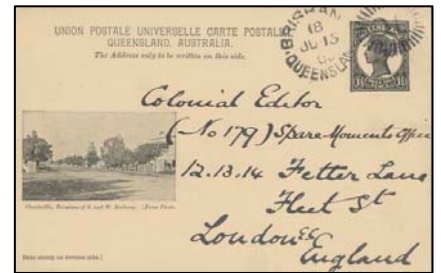 UNION POSTALE UNIVERSELLE CARTE POSTALE
QUEENSLAND, AUSTRALIA.
The Address only to be written on this side.
BRISBAN
18
JU 15
QUEENSLAN
Colonial Editor
(No 179) Spare Moments Office
12.13.14 Fetter Lane
Fleet St
London EC
England
Charleville, Terminus of S. and W. Railway.